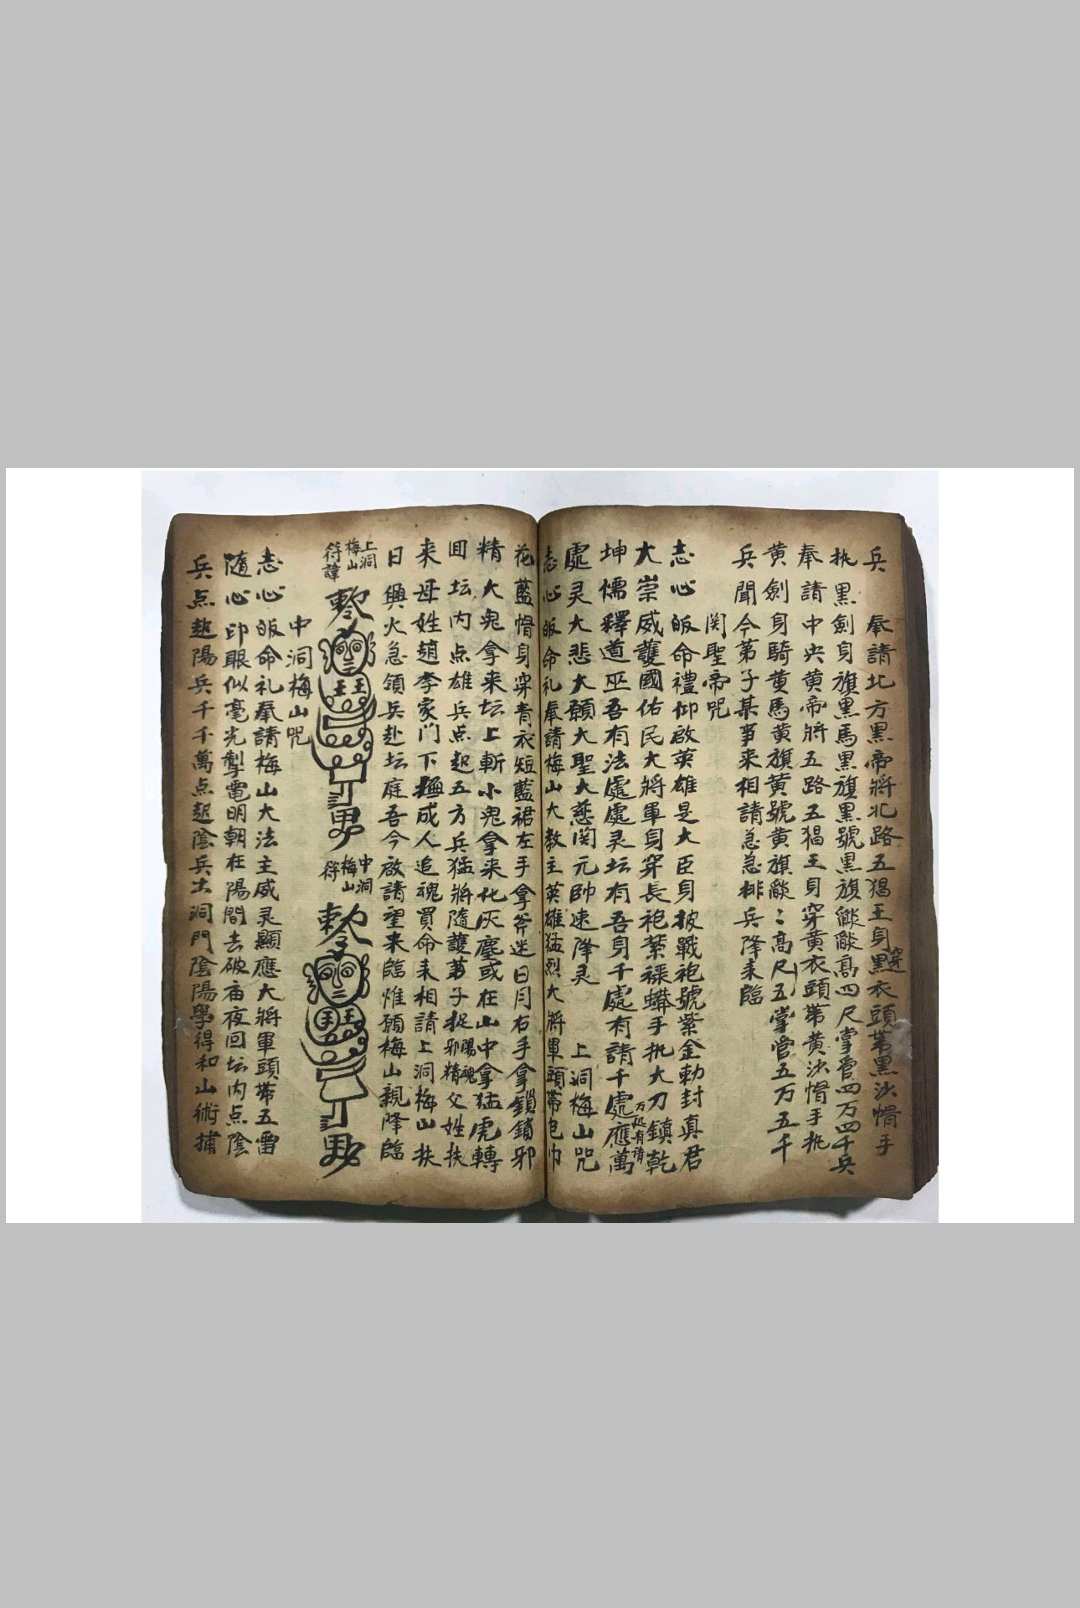 兵　奉請北方黑帝將北路五猖王身穿黑衣頭带黑沙帽手
执黑劍身旗黑馬黑旗黑號黑旗㷔㷔高四尺掌管四万四千兵
奉請中央黄帝將五路五猖王身穿黄衣頭带黄沙帽手执
黄劍身騎黄馬黄旗黄號黄旗㷔〻高尺五掌管五万五千
兵聞今弟子某事来相請急急排兵降来臨
関聖帝咒
志心皈命禮仰啟英雄是大臣身披戰袍號紫金勅封真君
大崇威護國佑民大將軍身穿長袍紫禄蟒手执大刀鎮乾
坤儒釋道巫吾有法處處灵坛有吾身千處有請千處應萬
万処有請
處灵大悲大願大聖大慈関元帥速降灵　上洞梅山咒
志心皈命礼奉請梅山大教主英雄猛烈大將軍頭带包巾
花藍帽身穿青衣短藍裙左手拿斧迷日月右手拿鎖鎖邪
精大鬼拿来坛上斬小鬼拿来化灰塵或在山中拿猛虎轉
囬坛内点雄兵点起五方兵猛將隨護弟子捉邪精父姓扶
陽魂
来母姓趙李家門下極成人追魂買命来相請上洞梅山扶
日興火急領兵赴坛庭吾今啟請望来臨惟願梅山親降臨
上洞梅山符諱
勅
王王
男
中洞梅山符
勅
王
男
中洞梅山咒
志心皈命礼奉請梅山大法主威灵顯應大將軍頭带五雷
隨心印眼似毫光掣電明朝在陽間去破庙夜回坛内点陰
兵点起陽兵千千萬点起陰兵出洞門陰陽學得和山術捕